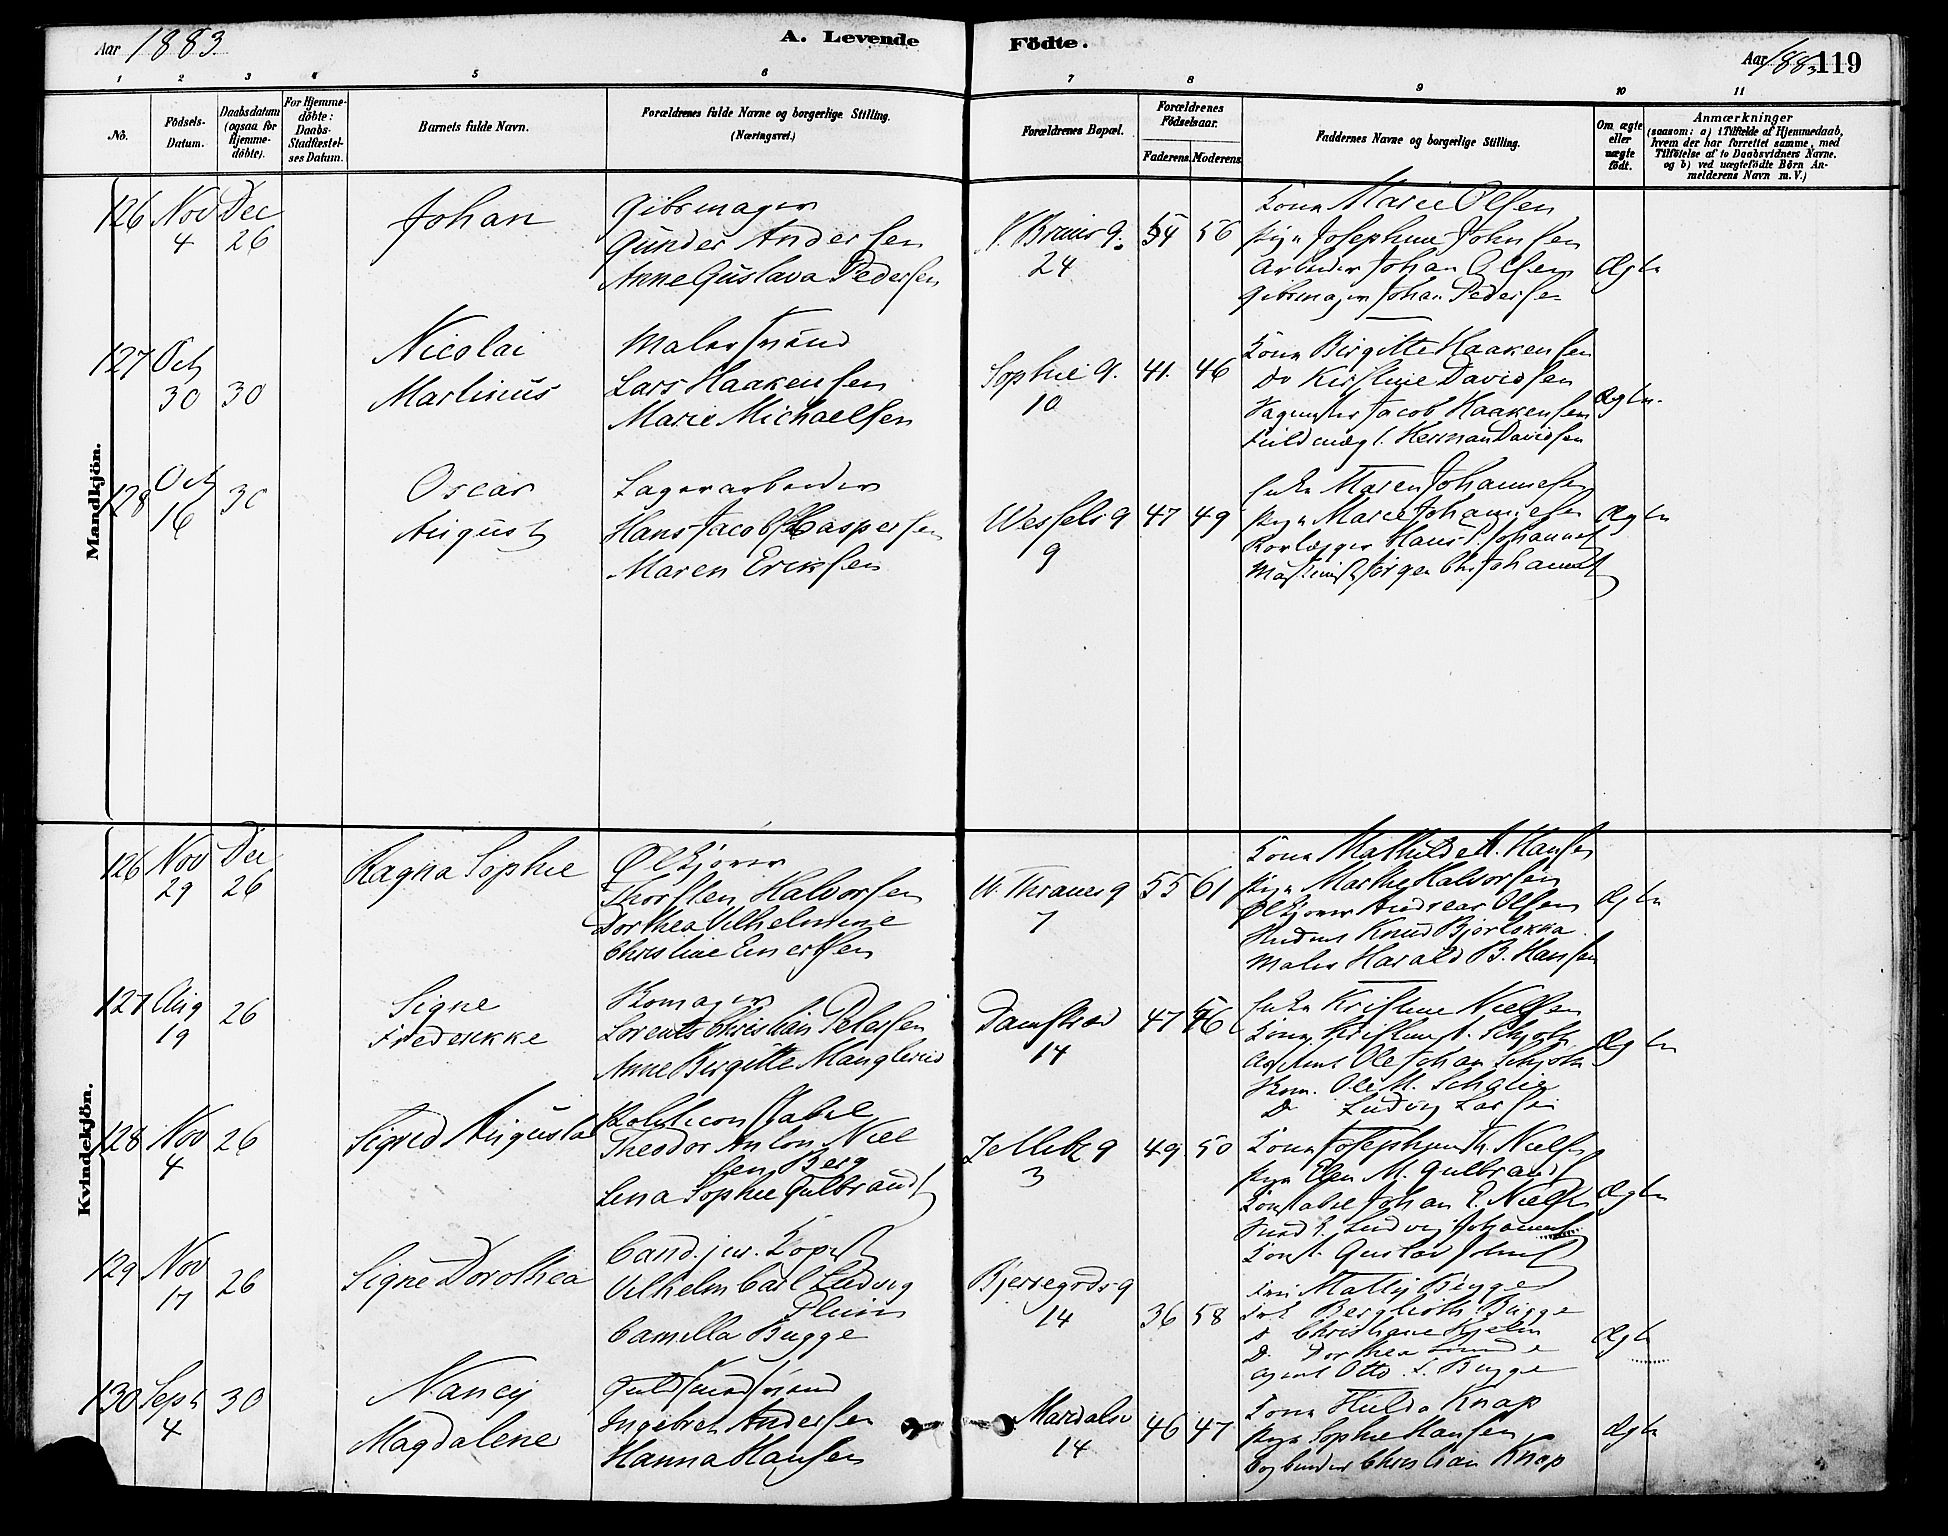 Aar 1883.
A. Levende
Födte.
Aar 1883
119
1 2 3 4 5 6 7 8 9 10 11
No.
Födsels-
Datum.
Daabsdatum
(ogsaa for
Hjemme-
döbte).
For Hjemme-
döbte:
Daabs-
Stadfæstel-
ses Datum.
Barnets fulde Navn.
Forældrenes fulde Navne og borgerlige Stilling.
(Næringsvei.)
Forældrenes Bopæl.
Forældrenes
Födselsaar.
Faderens. Moderens.
Faddernes Navne og borgerlige Stilling.
Om ægte
eller
uægte
födt.
Anmærkninger
(saasom: a) i Tilfælde af Hjemmedaab,
hvem der har forrettet samme, med
Tilföielse af to Daabsvidners Navne.
og b) ved uægtefödte Börn An-
melderens Navn m. V.)
Mandkjön.
126 Nov 4 Dec 26
Johan
Gibsmager
Gunder Andersen
Anne Gustava Pedersen
24
54 56
Kone Marie Olsen
Pige Josephine Johnsen
Arbeider Johan Olsen
Gibsmager Johan Pedersen
Ægte
127 Oct 30 30
Nicolai
Martinius
Malersvend
Lars Haakensen
Marie Michaelsen
Sophie g.
10
41. 46
Kone Birgitte Haakensen
Do Kirstine Davidsen
Jacob Haakensen
Fuldmægt. Herman Davidsen
Ægte.
128 Oct 16 30
Oscar
August
Lagerarbeider
Hans Jacob Caspersen
Maren Eriksen
Wessels g
9
47 49
Enke Maren Johannesen
Pige Marie Johannesen
Rørlægger Hans P. Johannes
Maskinist Jørgen Chr Johannes
Ægte
Kvindekjön.
126 Nov 29 Dec 26
Ragna Sophie
Ølkjører
Thorsten Halvorsen
Dorthea Vilhelmine
Christine Enertsen
W. Thranes g
7
55 61
Kone Mathilde A. Hansen
Pige Marthe Halvorsen
Ølkjører Andreas Olsen
Student Knud Bjorløkka
Maler Harald B. Hansen
Ægte
127 Aug 19 26
Signe
Frederikke
Skomager
Lorents Christian Petersen
Anne Birgitte Manglerud
Damstræd
14
47
Enke Kristine Nielsen
Ole Johan
Skom. Ole M.
Do Ludvig Larsen
Ægte
128 Nov 4 26
Sigred Augusta
Politiconstabel
Theodor Anton Niel
sen Berg
Lena Sophie Gulbrands
3
49 50
Kone Josephine Th. Nielsen
Pige Elen M. Gulbrands
Konstabel Johan E. Nielsen
Ludvig Johannes
Konst. Gustav Johns
Ægte
129 Nov 17 26
Signe Dorothea
Cand. jur. Kopist
Vilhelm Carl Ludvig
Pleim
Camella Bugge
Bjerregrds g
14
36 58
Fru Mally Bugge
Frk Berglioth Bugge
D. Christiane
D. Dorthea Lunde
Agent Otto S. Bugge
Ægte
130 Sept 4 30
Nancy
Magdalene
Guldsmedsvend
Ingebret Andersen
Hanna Hansen
14
46 47
Kone Hulda Knap
Pige Sophie Hansen
Bogbinder Christian Knap
Ægte